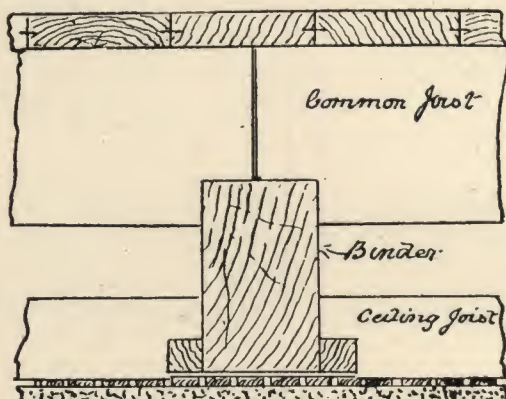 Common Joist
Binder
Ceiling Joist